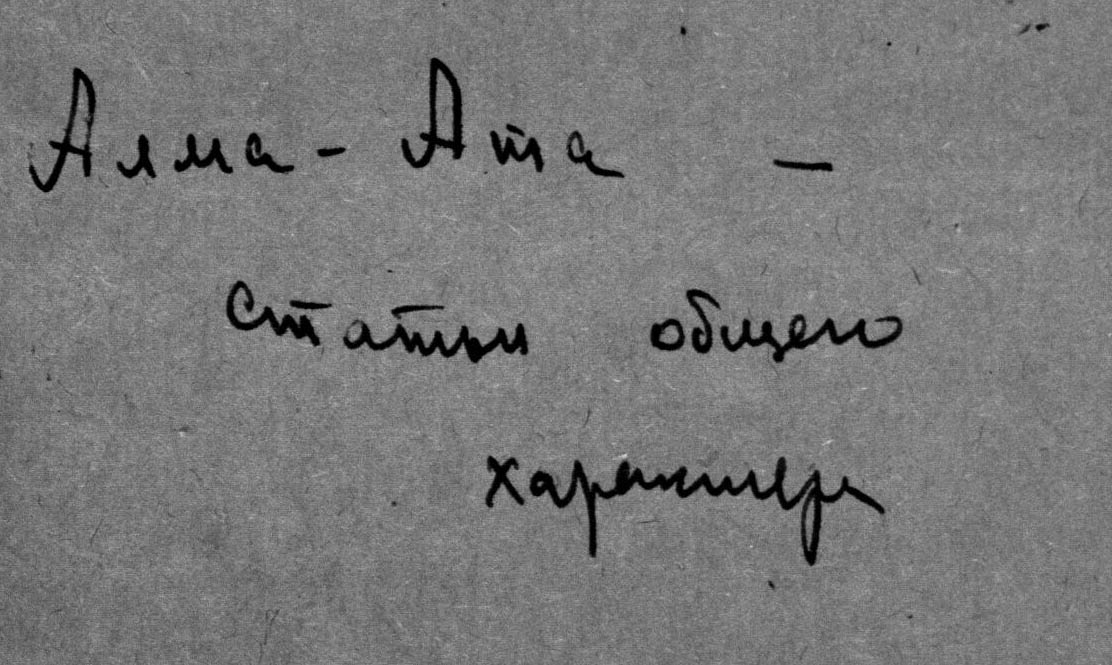 Алма-Ата —
Статьи общего
характера